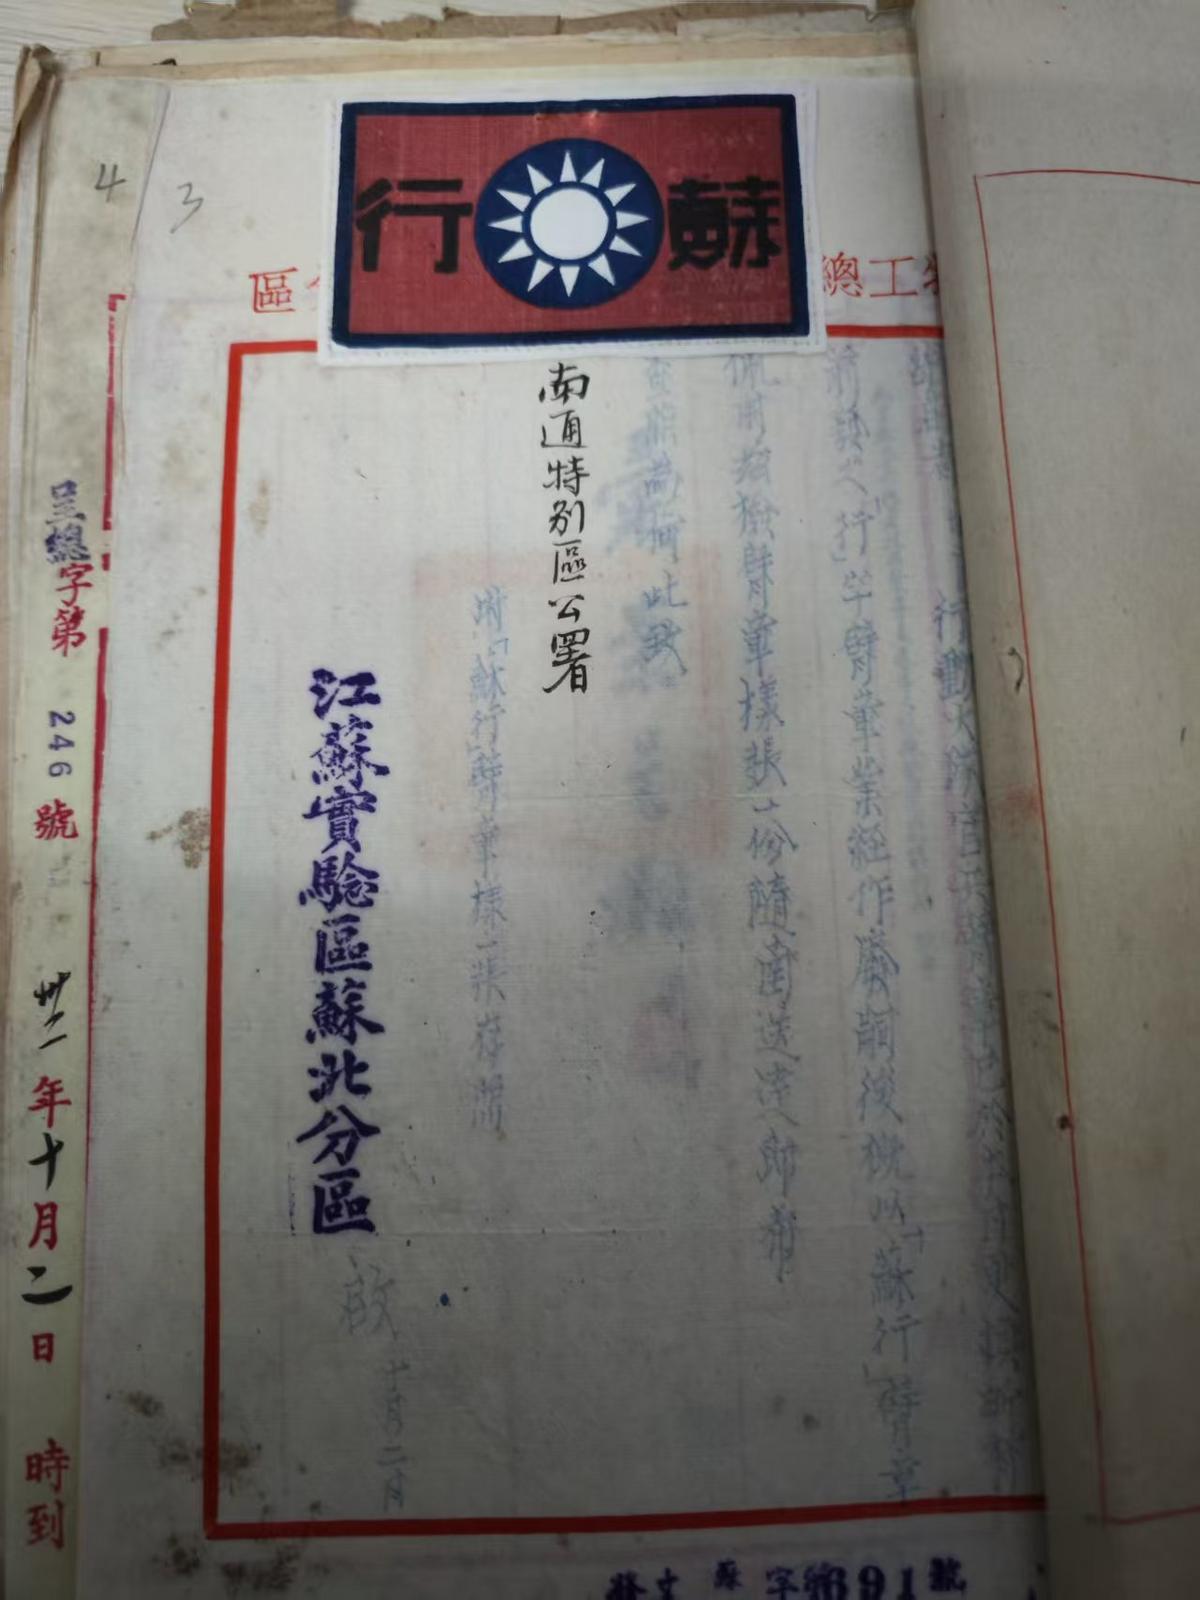 蘇行
總工
區
行動大隊
前發「行」字臂章業經作廢嗣後概以「蘇行」臂章
佩用茲檢臂章樣張一份隨函送達即希
查照為荷此致
南通特別區公署
附「蘇行」臂章樣一張存閱
江蘇實驗區蘇北分區
啟 十月二日
發文 蘇 字 691 號
呈總字第 246 號
卅二年十月二日 時到
3
4